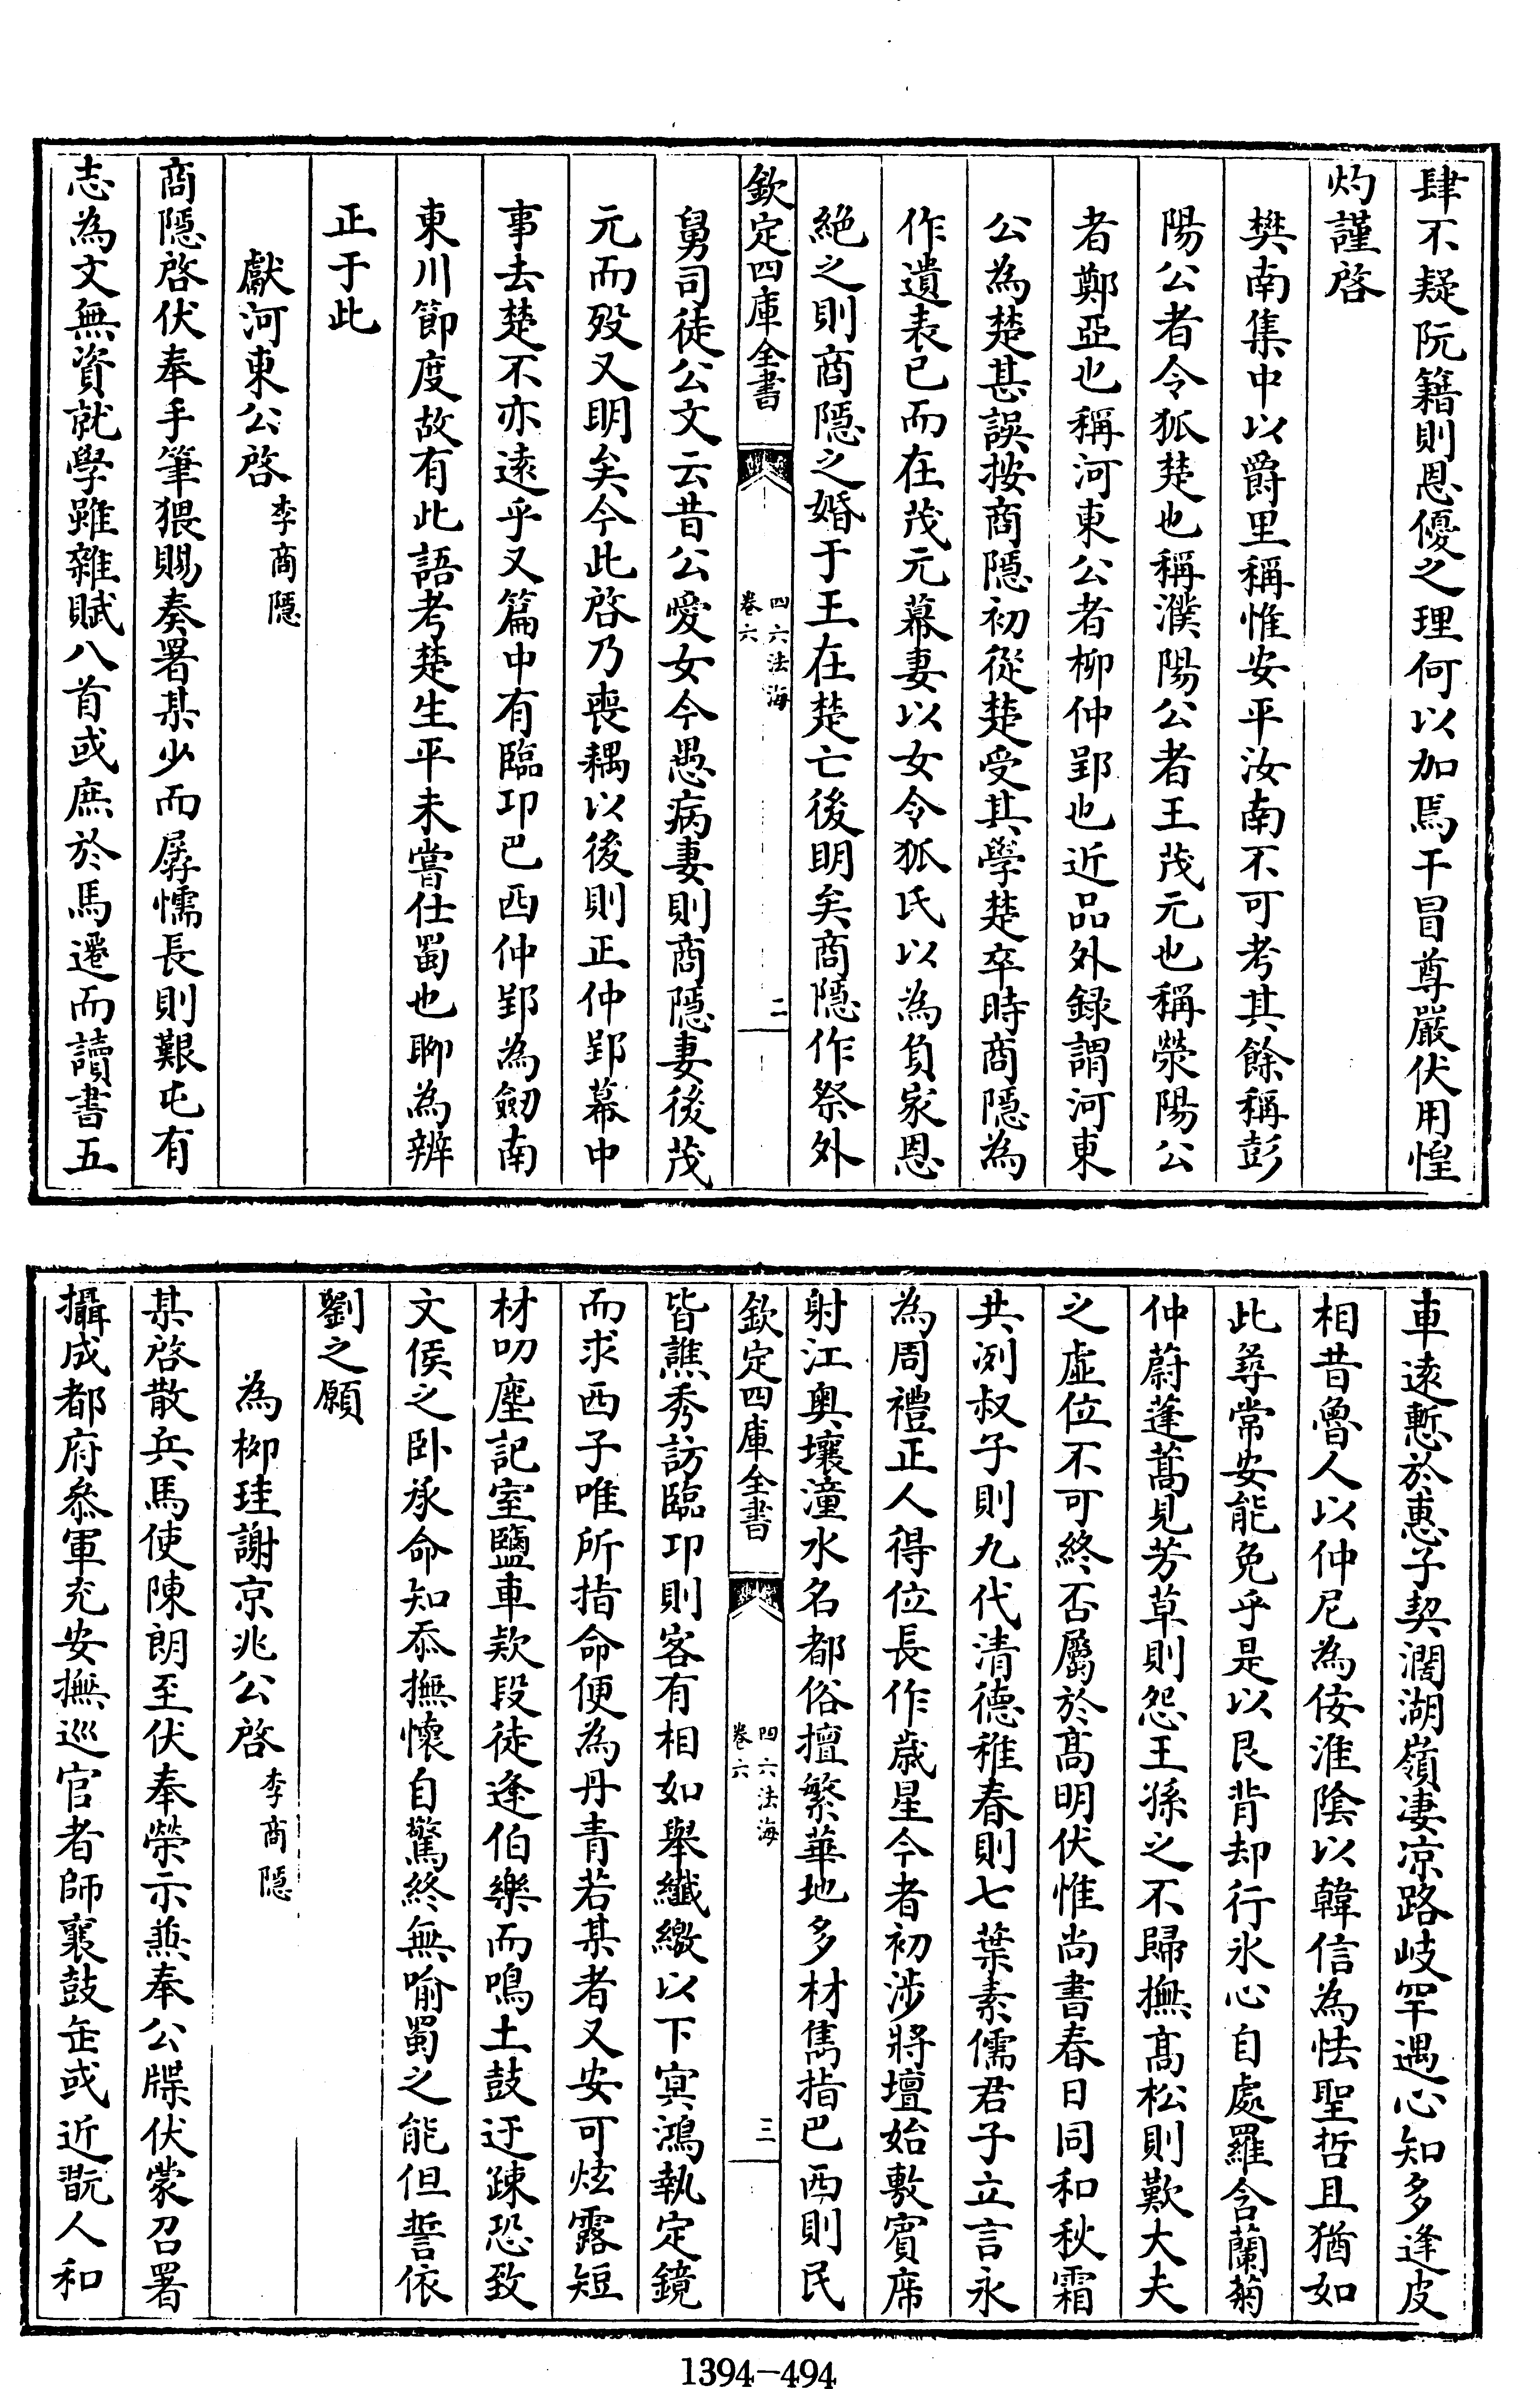 肆不疑阮籍則恩優之理何以加焉干冒尊嚴伏用惶
灼謹啓
樊南集中以爵里稱惟安平汝南不可考其餘稱彭
陽公者令狐楚也稱濮陽公者王茂元也稱滎陽公
者鄭亞也稱河東公者柳仲郢也近品外録謂河東
公為楚甚誤按商隠初從楚受其學楚卒時商隠為
作遺表已而在茂元幕妻以女令狐氏以為負家恩
絶之則商隠之婚于王在楚亡後明矣商隠作祭外
欽定四庫全書
四六法海
卷六
二
舅司徒公文云昔公愛女今愚病妻則商隠妻後茂
元而殁又明矣今此啓乃喪耦以後則正仲郢幕中
事去楚不亦逺乎又篇中有臨卭巴西仲郢為劒南
東川節度故有此語考楚生平未嘗仕蜀也聊為辨
正于此
獻河東公啓李商隠
商隠啓伏奉手筆猥賜奏署某少而孱懦長則艱屯有
志為文無資就學雖雜賦八首或庶於馬遷而讀書五
車逺慙於惠子契濶湖嶺凄凉路岐罕遇心知多逢皮
相昔魯人以仲尼為佞淮陰以韓信為怯聖哲且猶如
此尋常安能免乎是以艮背却行氷心自處羅含蘭菊
仲蔚蓬蒿見芳草則怨王孫之不歸撫髙松則歎大夫
之虛位不可終否屬於髙明伏惟尚書春日同和秋霜
共冽叔子則九代清德稚春則七葉素儒君子立言永
為周禮正人得位長作歳星今者初涉將壇始敷賓席
射江奥壤潼水名都俗擅繁華地多材雋指巴西則民
欽定四庫全書
四六法海
卷六
三
皆譙秀訪臨卭則客有相如舉纎繳以下冥鴻執定鏡
而求西子唯所指命便為丹青若某者又安可炫露短
材叨塵記室鹽車欵段徒逢伯樂而鳴土鼓迂疎恐致
文侯之卧承命知忝撫懷自驚終無喻蜀之能但誓依
劉之願
為栁珪謝京兆公啓李商隠
某啓散兵馬使陳朗至伏奉榮示兼奉公牒伏蒙召署
攝成都府叅軍充安撫巡官者師襄鼓缶或近翫人和
1394-494